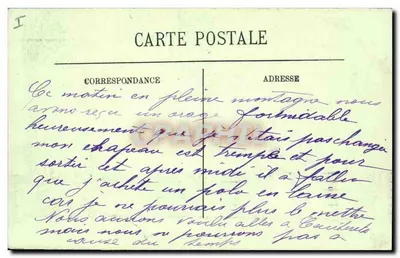 I
CARTE POSTALE
CORRESPONDANCE
ADRESSE
Ce matin en pleine montagne nous
avons reçu un orage formidable
heureusement que je n'étais pas changée
mon chapeau est trempé et pour
sortir cet après midi il a fallu
que j'achète un polo en laine
car je ne pourrais plus le mettre
Nous aurions voulu aller à Cauterets
mais nous ne pourrons pas à
cause du temps